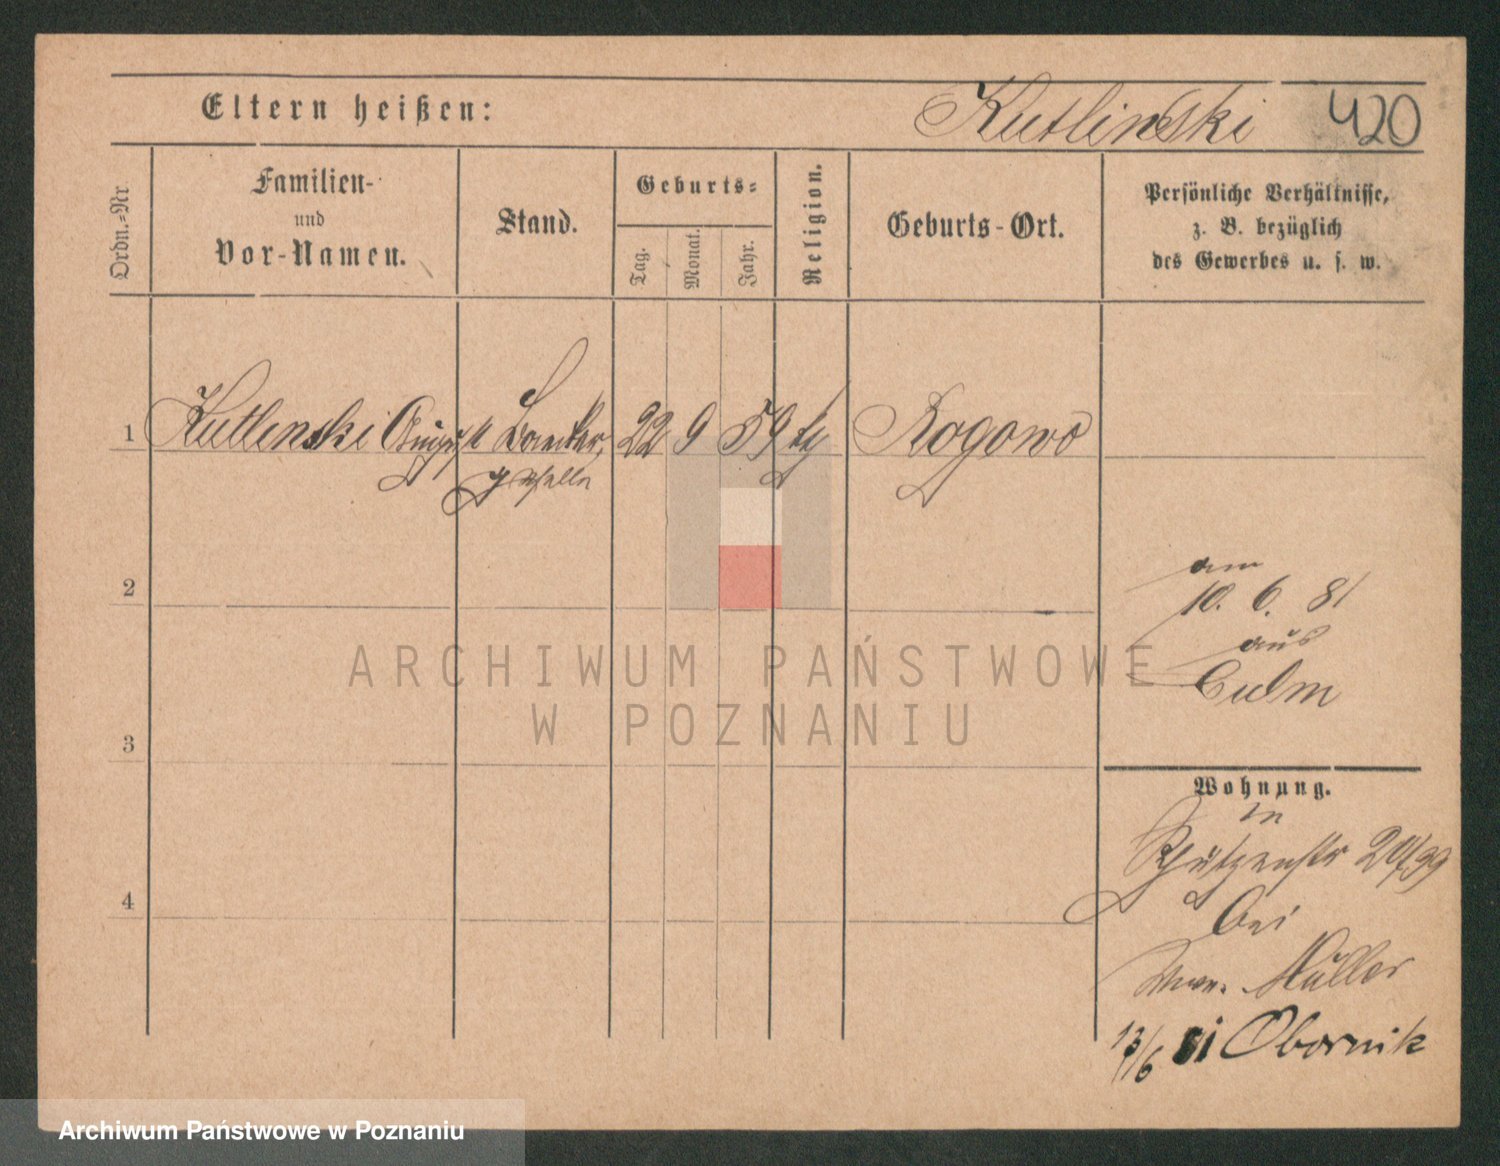 Eltern heißen:
Kutlinski 420
Ordn.-Nr.
Familien-
und
Vor-Namen.
Stand.
Geburts-
Tag.
Monat.
Jahr.
Religion.
Geburts-Ort.
Persönliche Verhältnisse,
z. B. bezüglich
des Gewerbes u. s. w.
1 Kutlenski August 22 9 59 Rogowo
geselle
2
am
10. 6. 81
aus
Culm
3
4
Wohnung.
in
Schützenstr
bei
Wwe. Müller
13/6 81 Obornik
ARCHIWUM PAŃSTWOWE
W POZNANIU
Archiwum Państwowe w Poznaniu